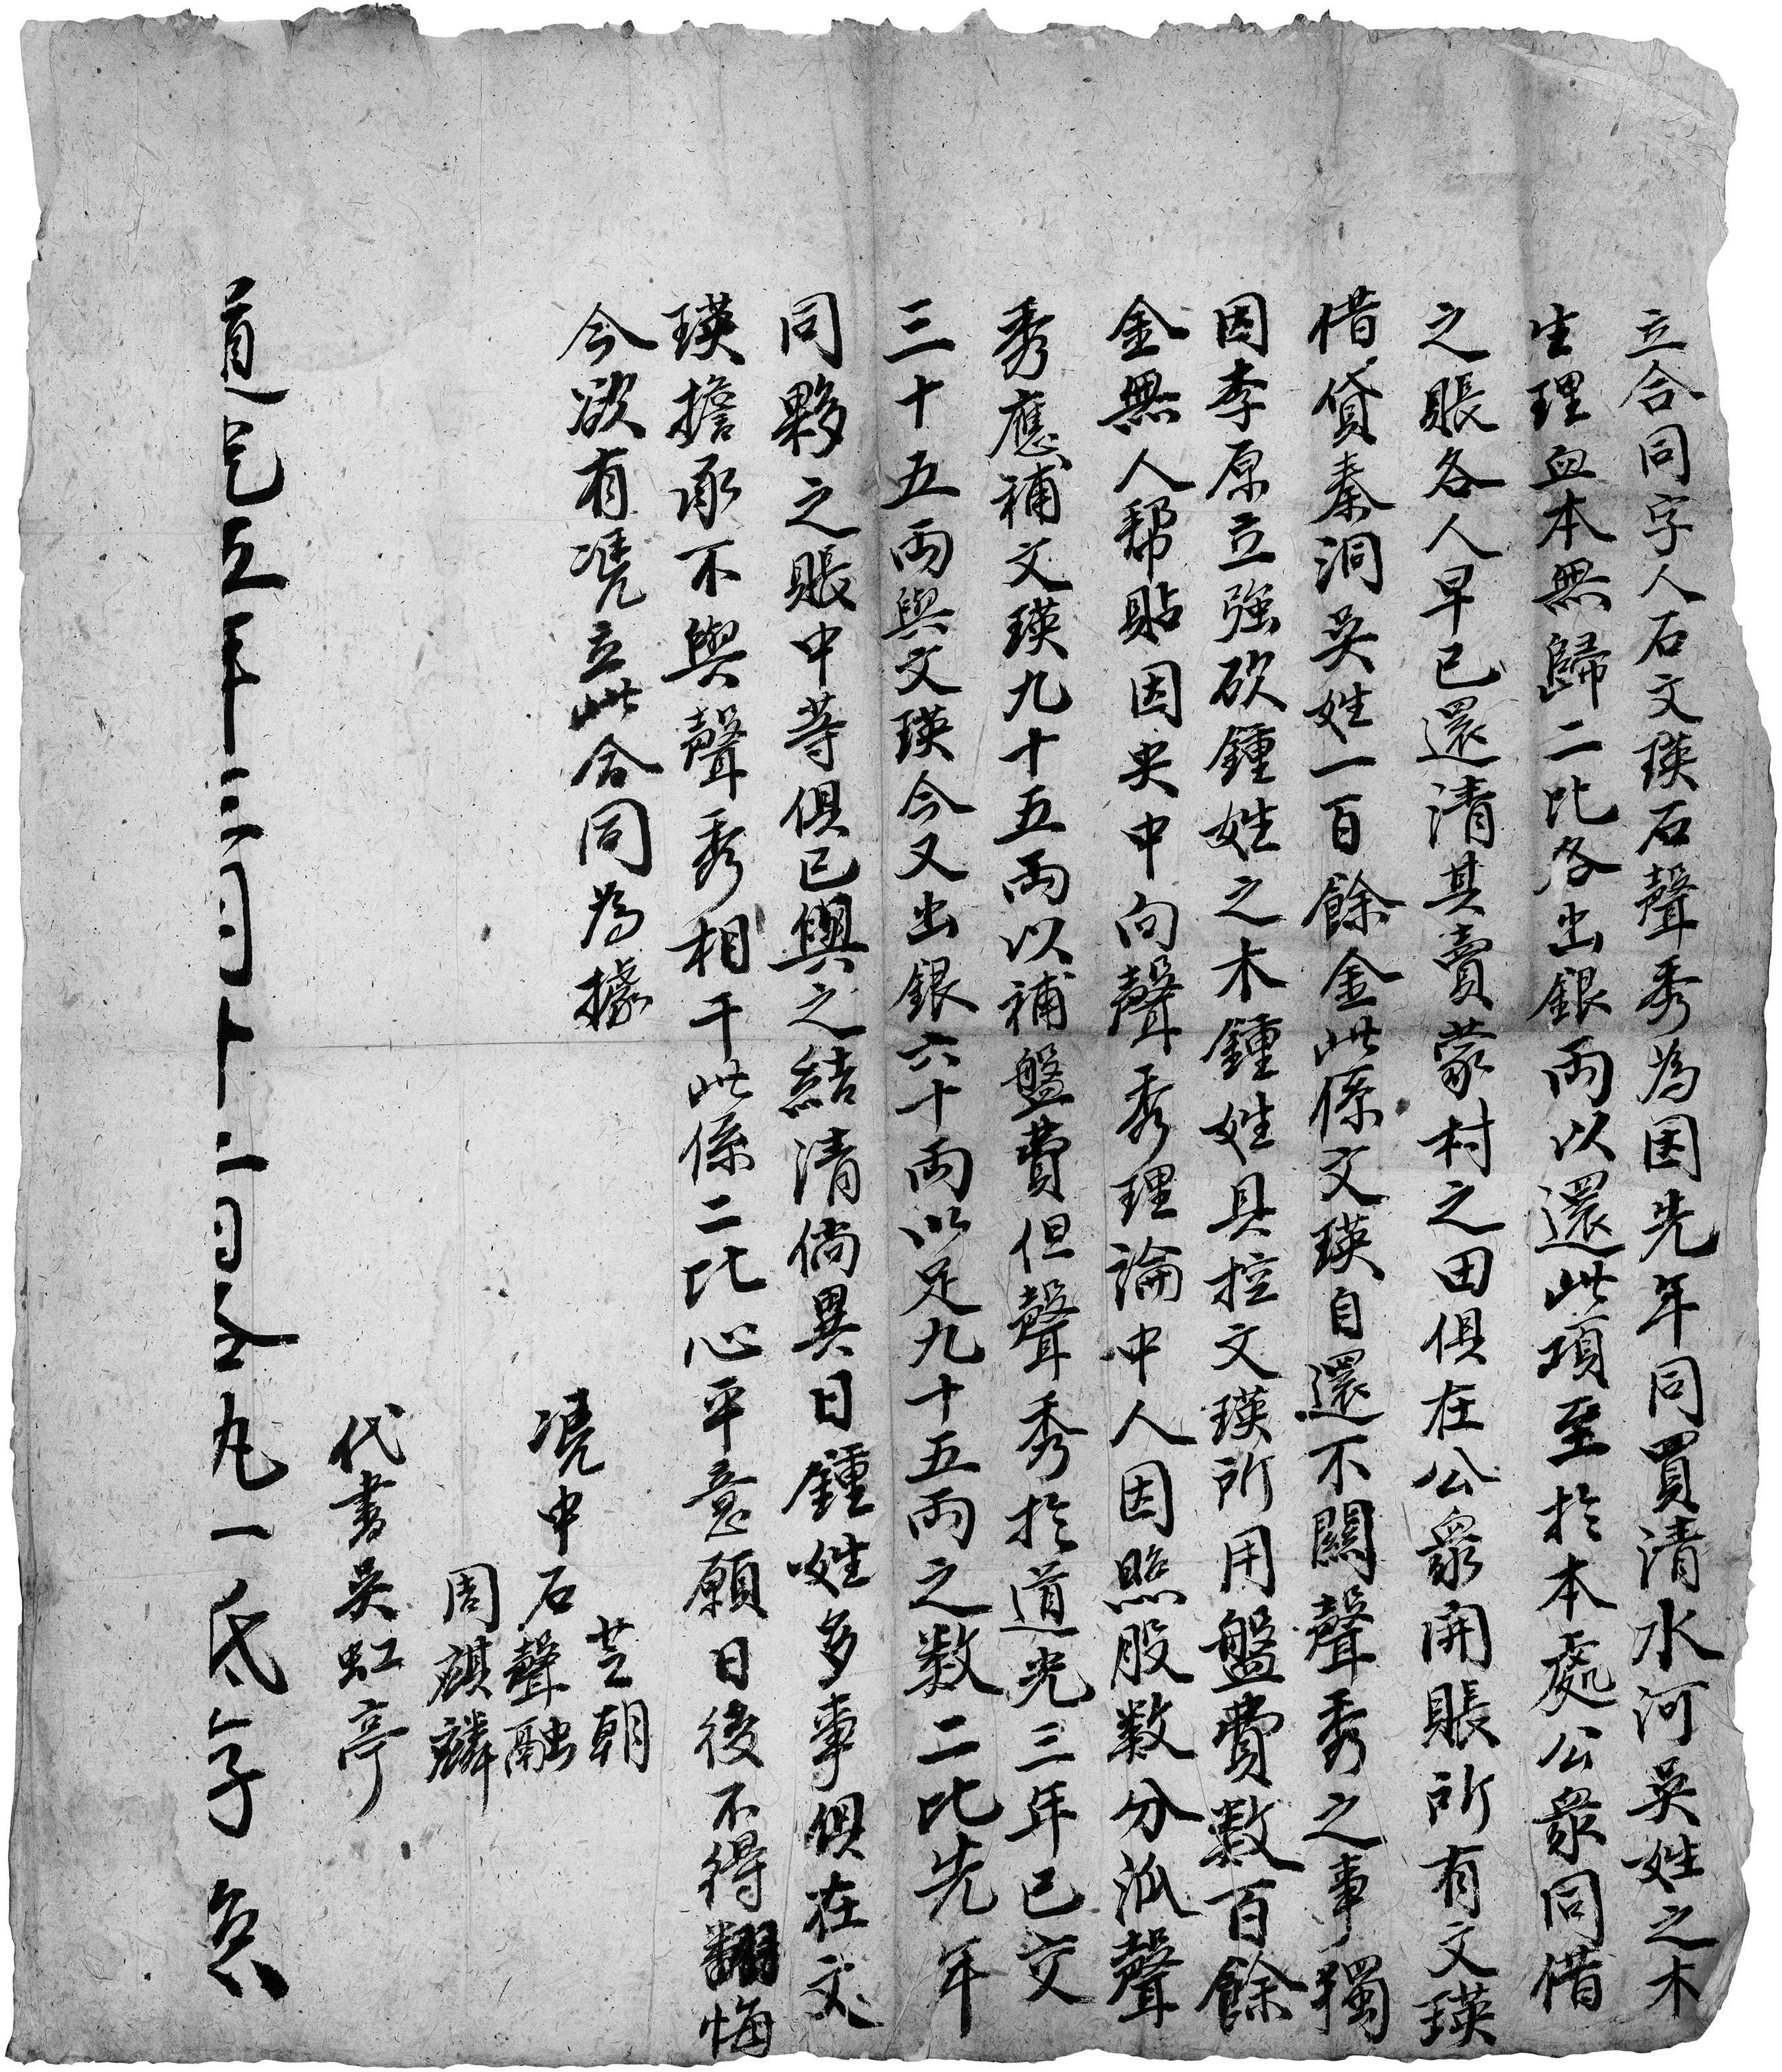 立合同字人石文瑛石聲秀為因先年同買清水河吳姓之木
生理血本無歸二比各出銀兩以還此項至於本處公衆同借
之賬各人早已還清其賣蒙村之田俱在公衆開賬所有文瑛
借貸秦洞吳姓一百餘金此係文瑛自還不關聲秀之事獨
因李原立強砍鍾姓之木鍾姓具控文瑛所用盤費數百餘
金無人帮貼因央中向聲秀理論中人因照股数分泒聲
秀應補文瑛九十五兩以補盤費但聲秀於道光三年已交
三十五兩與文瑛今又出銀六十兩以足九十五兩之数二比先年
同夥之賬中等俱已與之結清倘異日鍾姓多事俱在文
瑛擔承不與聲秀相干此係二比心平意願日後不得翻悔
今欲有凴立此合同為據
芝朝
凴中石聲融
周麒麟
代書吳虹亭